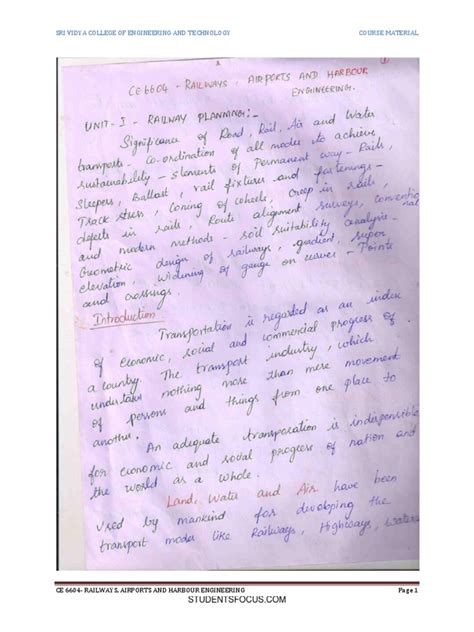 SRI VIDYA COLLEGE OF ENGINEERING AND TECHNOLOGY COURSE MATERIAL
CE 6604 - RAILWAYS, AIRPORTS AND HARBOUR
ENGINEERING.
UNIT - I - RAILWAY PLANNING:-
Significance of Road, Rail, Air and Water
transports - Co-ordination of all modes to achieve
sustainability - Elements of Permanent way - Rails,
Sleepers, Ballast, rail fixtures and fastenings -
Track stress, Coning of wheels, Creep in rails,
defects in rails, Route alignment surveys, conventio
nal
and modern methods - soil suitability analysis -
Geometric design of railways, gradient, super
elevation, Widening of gauge on curves - Points
and crossings.
Introduction
Transportation is regarded as an index
of economic, social and commercial progress of
a country. The transport industry, which
undertakes nothing more than mere movement
of persons and things from one place to
another.
An adequate transporation is indespensible
for economic and social progress of nation and
the world as a whole.
Land, Water and Air have been
used by mankind for developing the
transport modes like Railways, Highways,
CE 6604- RAILWAYS, AIRPORTS AND HARBOUR ENGINEERING Page 1
STUDENTSFOCUS.COM